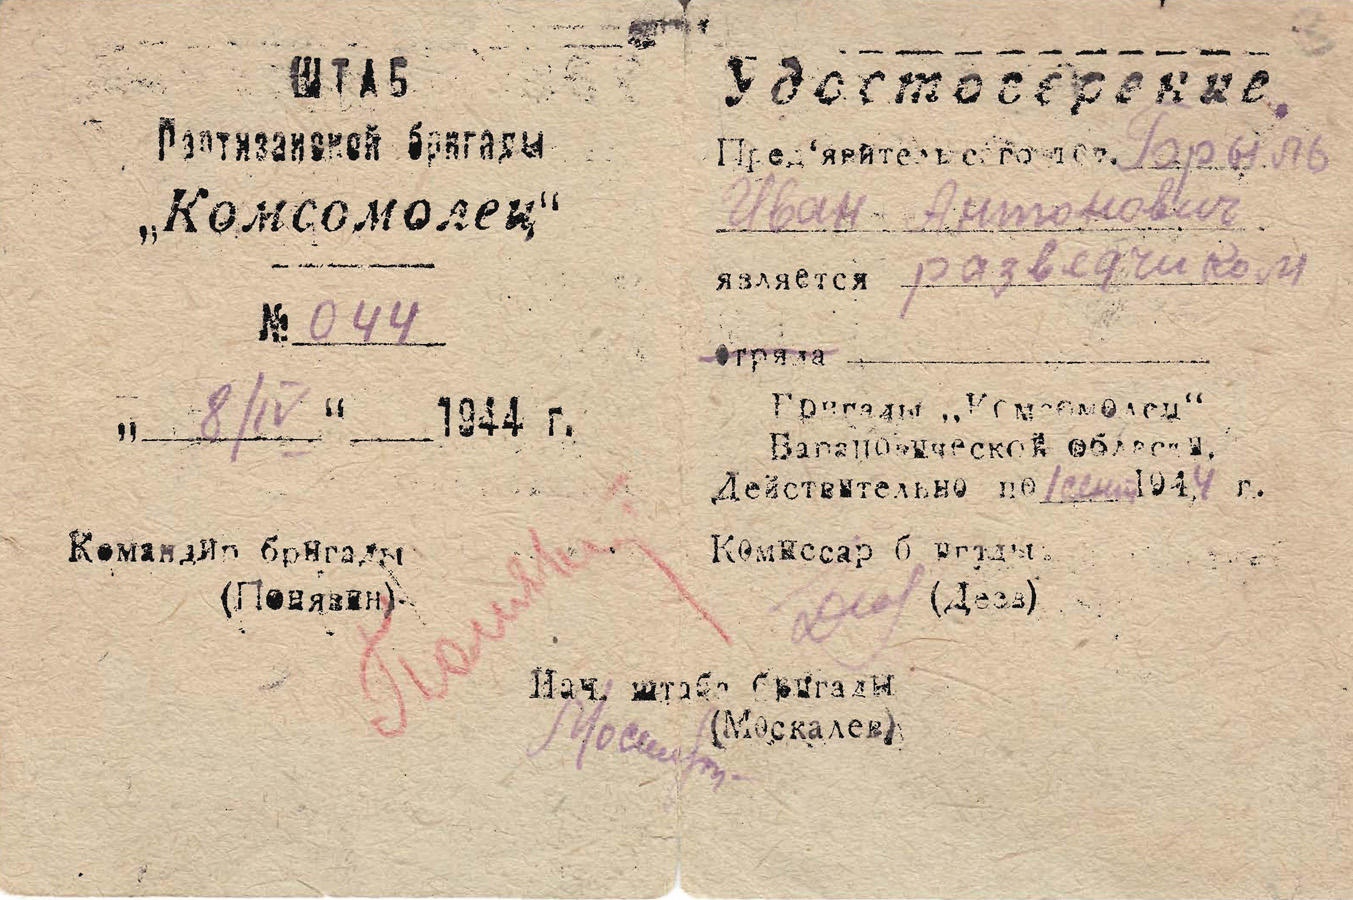 ШТАБ
Партизанской бригады
„Комсомолец“
№ 044
„ 8/IV “ 1944 г.
Командир бригады
(Понявин)
Удостоверение
Пред‘явитель сего тов. Горыль
Иван Антонович
является разведчиком
отряда
Бригады „Комсомолец“
Барановической области.
Действительно по 1 сент 1944 г.
Комиссар бригады
(Деев)
Нач. штаба бригады
(Москалев)
3